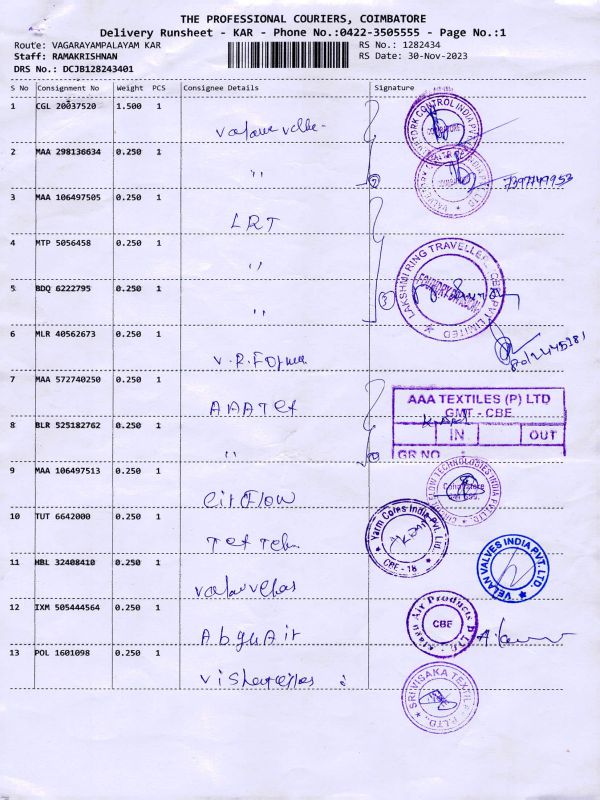 THE PROFESSIONAL COURIERS, COIMBATORE
Delivery Runsheet - KAR - Phone No.:0422-3505555 - Page No.:1
Route: VAGARAYAMPALAYAM KAR
RS No.: 1282434
Staff: RAMAKRISHNAN
RS Date: 30-Nov-2023
DRS No.: DCJB128243401
S No Consignment No Weight PCS Consignee Details Signature
1 CGL 20037520 1.500 1
2 MAA 298136634 0.250 1 ,,
7397749953
3 MAA 106497505 0.250 1 LRT
4 MTP 5056458 0.250 1 ,,
LAKSHMI RING TRAVELLERS CBE PVT LIMITED
FOUNDRY DIVISION
5 BDQ 6222795 0.250 1 ,,
3
6 MLR 40562673 0.250 1 V.R.
7 MAA 572740250 0.250 1 AAA Tex
AAA TEXTILES (P) LTD
GMT - CBE
IN OUT
GR NO
8 BLR 525182762 0.250 1 ,,
9 MAA 106497513 0.250 1 Cir Flow
FLOW TECHNOLOGIES INDIA PVT LTD
Coimbatore
10 TUT 6642000 0.250 1
Yarn Cones India Pvt. Ltd.
CBE - 18
11 HBL 32408410 0.250 1
VELAN VALVES INDIA PVT. LTD.
12 IXM 505444564 0.250 1
Air Products P Ltd
CBE
13 POL 1601098 0.250 1
SRI VISAKA TEXTILE P.LTD.